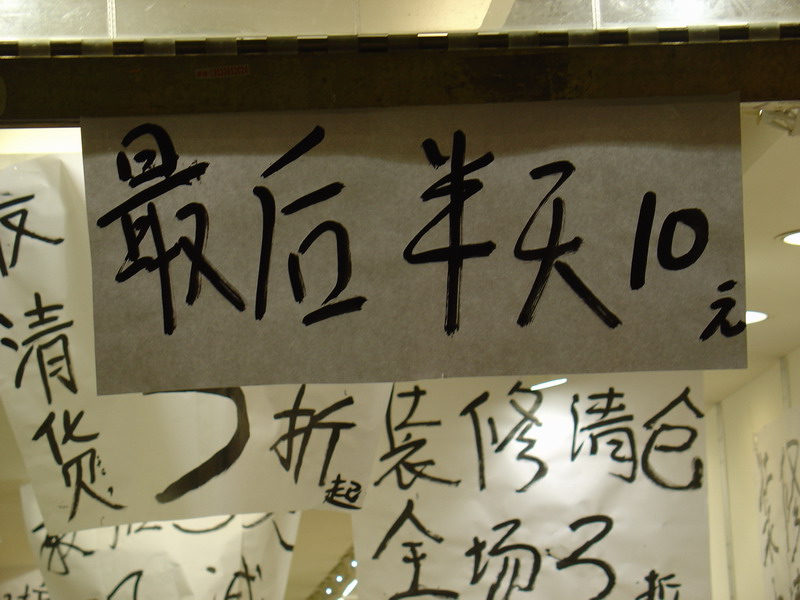 最后半天10元
清货
折起
装修清仓
全场3折